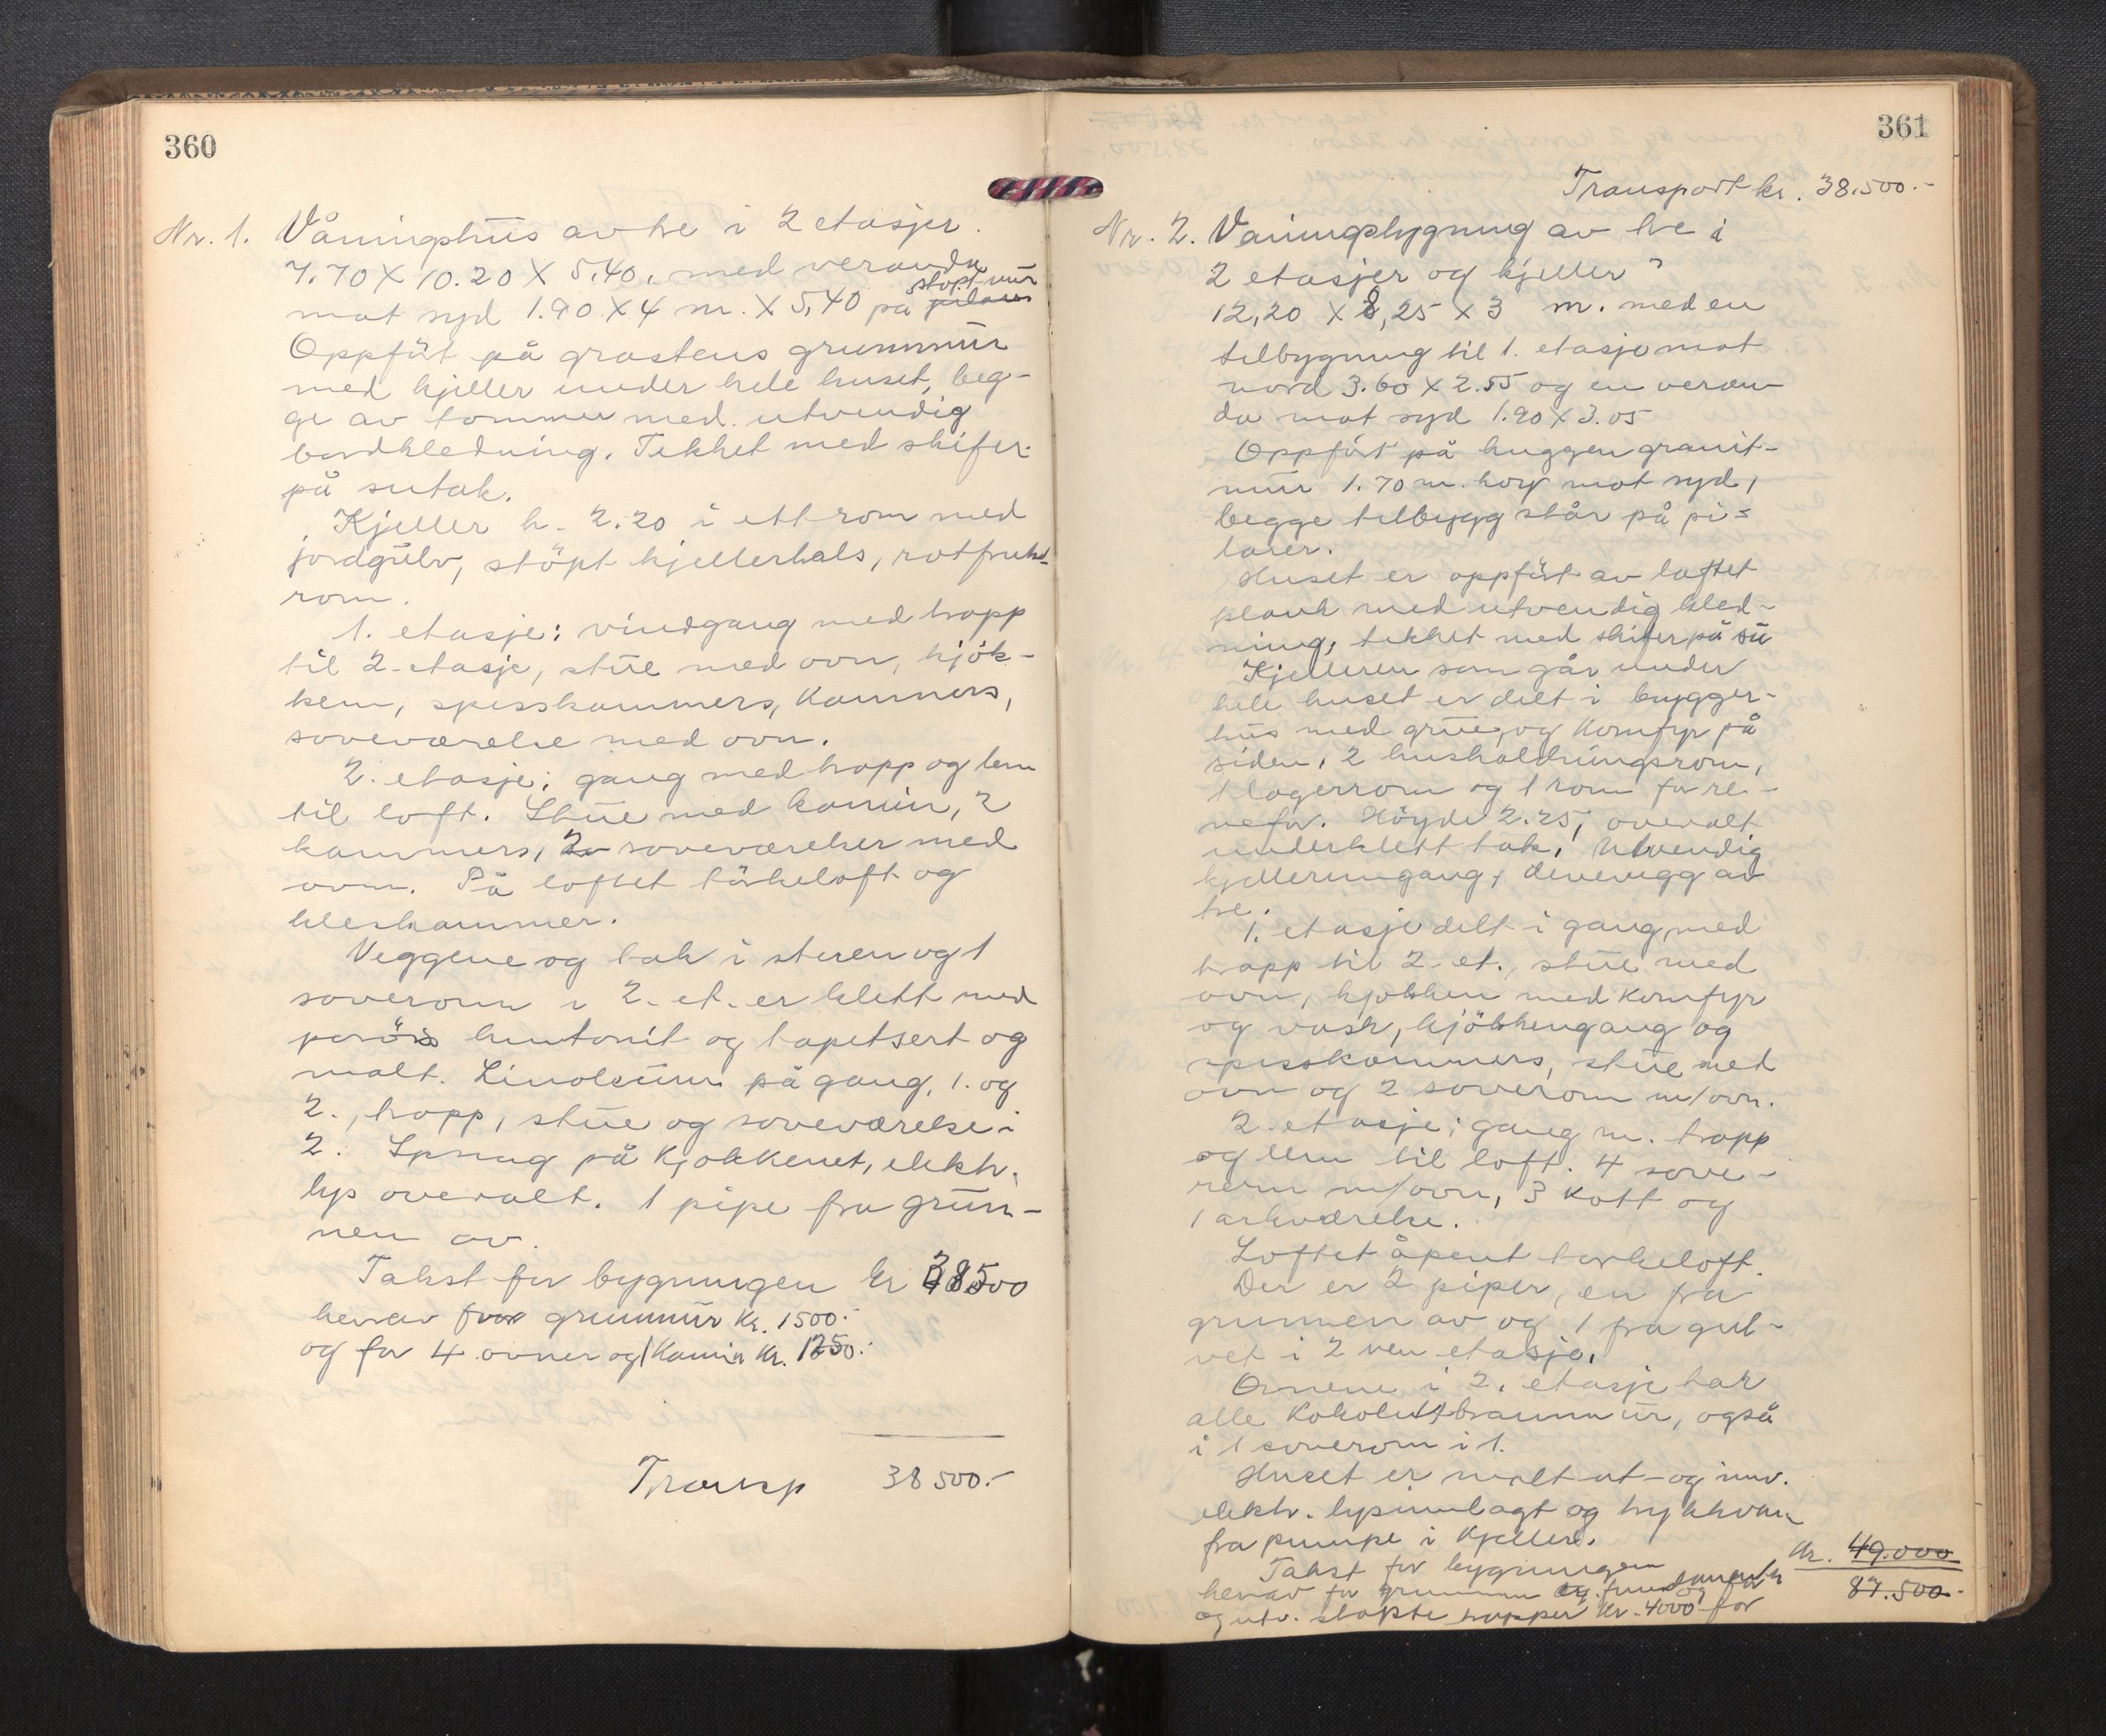 360
Nr. 1. Våningshus av tre i 2 etasjer.
7.70 X 10.20 X 5.40. med veranda
mot syd 1.90 X 4 m. X 5,40 på pilarer støpt mur
Oppført på gråstens grunnmur
med kjeller under hele huset, beg-
ge av tømmer med utvendig
bordkledning. Tekket med skifer
på sutak.
Kjeller h. 2.20 i ett rom med
jordgulv, støpt kjellerhals, rotfrukt-
rom.
1. etasje: vindgang med trapp
til 2. etasje, stue med ovn, kjøk-
ken, spisskammers, kammers,
soveværelse med ovn.
2. etasje; gang med trapp og lem
til loft. Stue med kamin, 2
kammers, 2 soveværelser med
ovn. På loftet tørkeloft og
kleskammer.
Veggene og tak i stuen og 1
soverom i 2. et. er klett med
porøs huntonit og tapetsert og
malt. Linoleum på gang, 1. og
2., trapp, stue og soveværelse i
2. Spring på kjøkkenet, elektr.
lys overalt. 1 pipe fra grun-
nen av.
Takst for bygningen kr 38500
herav for grunnmur Kr. 1500.-
og for 4 ovner og 1 Kamin Kr. 1250.-
Transp 38 500.-
361
Transport kr. 38.500.-
Nr. 2. Våningsbygning av tre i
2 etasjer og kjeller
12,20 X 8,25 X 3 m. med en
tilbygning til 1. etasje mot
nord 3.60 X 2.55 og en veran-
da mot syd 1.90 X 3.05
Oppført på huggen granit-
mur 1.70 m. høy mot syd,
begge tilbygg står på pi-
larer.
Huset er oppført av laftet
plank med utvendig kled-
ning, tekket med skifer på su
Kjelleren som går under
hele huset er delt i brygger-
hus med grue, og Komfyr på
siden, 2 husholdningsrom,
1 lagerrom og 1 rom for re-
nefor. Høyde 2.25, overalt
underklett tak. Utvendig
kjellerinngang, delevegg av
tre.
1. etasje delt i gang med
trapp til 2. et., stue med
ovn, kjøkken med Komfyr
og vask, kjøkkengang og
spisskammers, stue med
ovn og 2 soverom m/ovn.
2. etasje; gang m. trapp
og lem til loft. 4 sove-
rom m/ovn, 3 Kott og
1 arkværelse.
Loftet åpent tørkeloft.
Der er 2 piper, en fra
grunnen av og 1 fra gul-
vet i 2 nen etasje.
Ovnene i 2. etasje har
alle brannmur, også
i 1 soverom i 1.
Huset er malt ut- og innv.
elektr. lys innlagt og trykkvann
fra pumpe i Kjelleren.
Takst for bygningen kr. 49.000
herav for grunnmur og fundamenter
og utv. støpte trapper Kr. 4000 og for
87.500.-